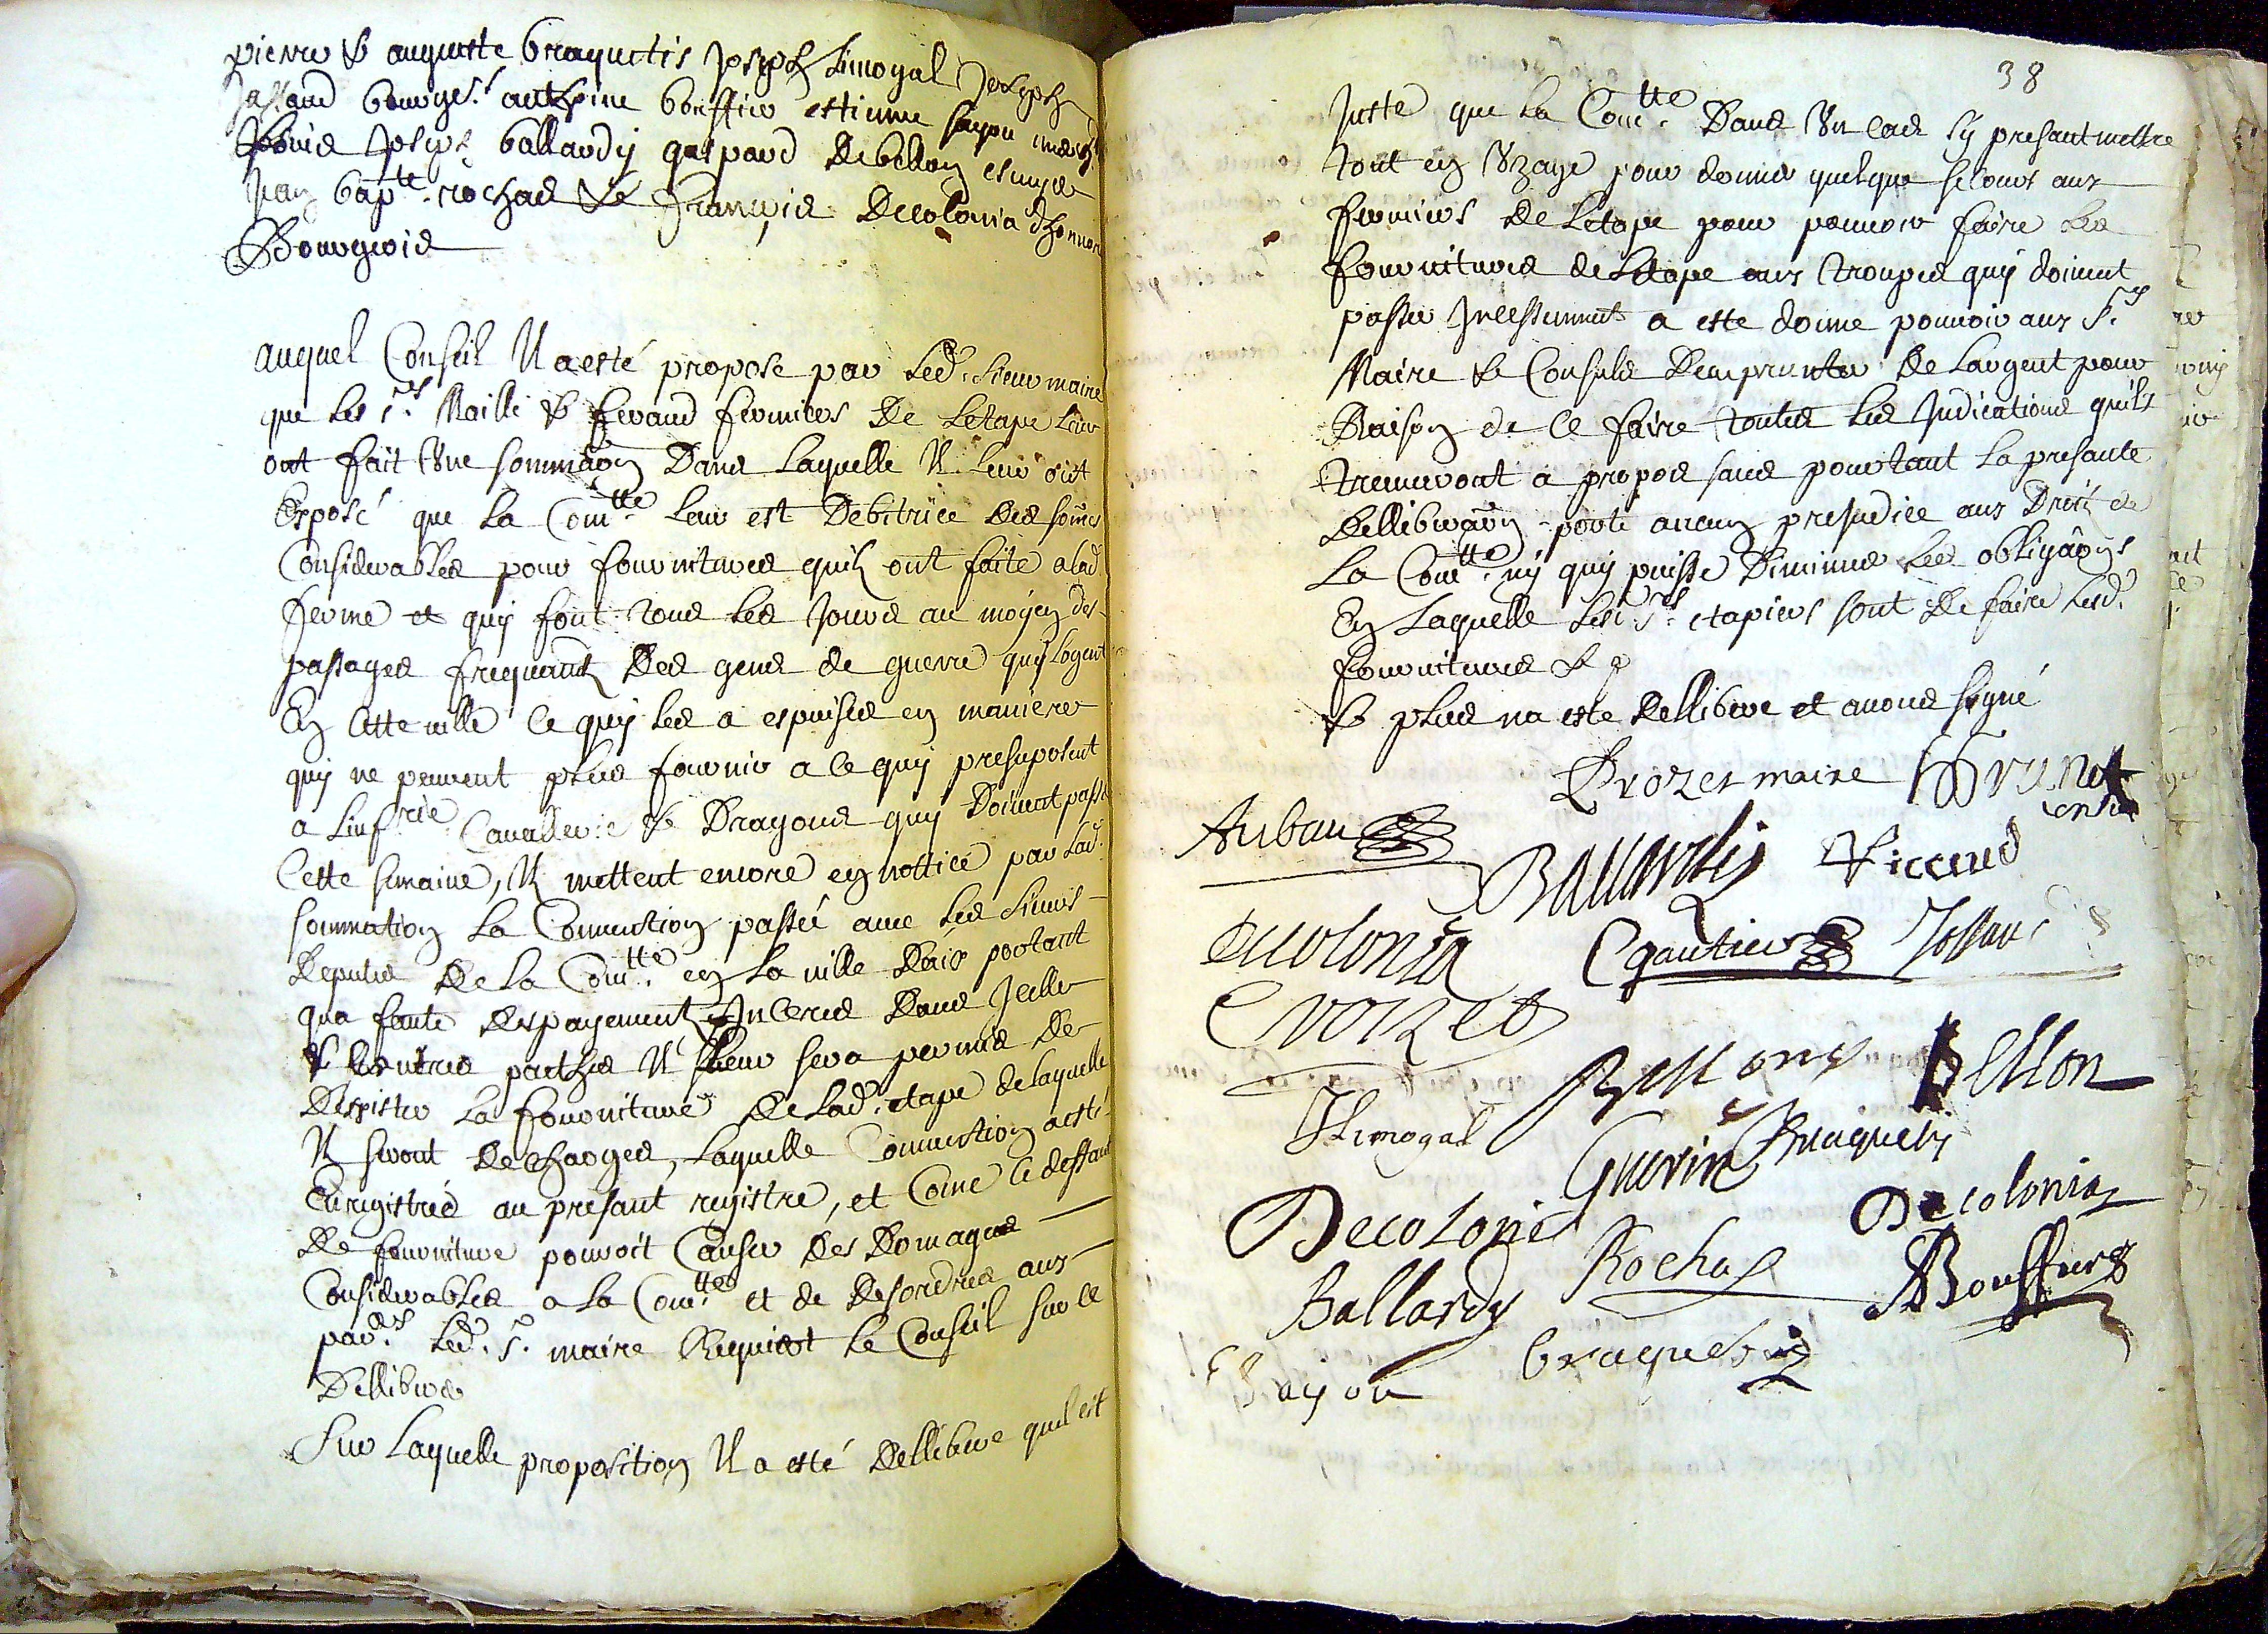 pierre & auguste braquetis Joseph Limogal Joseph
Jassaud bourges.t anthoine boiffier estienne fayon
Joseph ballardy gaspard Debellon escuyer
Jean bap.te rochas & François Decolonia
Bourgeois
auquel Conseil Il a esté propose par led. sieur maire
que les s.rs Maille & feraud fermiers De Letape Leur
ont fait Une sommaõn Dans Laquelle Il Leur ont
Exposé que La Com.tte Leur est Debitrice Des somes
Considerables pour fournitures quils ont faite alad
ferme et quy font tous Les Jours au moyen des
passages frequants Des gens de guerre quy Logent
En Cette ville Ce quy Les a espuises en maniere
quy ne peuvent plus fournir a Ce quy presuposent
a Linf.rie Cavallerie & Dragons quy Doivent passer
Cette semaine, Il mettent encore en nottice par Lad.
sommation La Convention passée avec Les sieurs
Deputes De La Com.tte en La ville Daix portant
qua faute Des payement Inceres Dans Jcelle
& Les parthes Il Leur sera permis De
Desister La fourniture De Lad. etape de Laquelle
Il seront Decharges, Laquelle Convention a esté
Enregistrée au presant registre, et Come Ce deffaut
De fourniture pouroit Causer Des Domages
Considerables a La Com.tte et de Desordres aux
par.rs Led. s.r maire Requiert Le Conseil sur Ce
Delliberer
Sur Laquelle proposition Il a esté Dellibere quil est
38
Juste que La Com.tte Dans Un Cas sy presant mettre
tout en Uzage pour donner quelque secours aux
fermiers De Letape pour pouvoir faire Les
fournitures de Letape aux troupes quy doivent
passer Incessemment a este donne pouvoir aux S.rs
Maire & Consuls Demprunter De Largent pour
Raison de Ce faire toutes Les Indications quils
treuveront a propos sans pourtant La presante
Delliberaõn porte aucun presjudice aux Droit de
La Com.tte ny quy puisse Diminuer Les obligaõns
En Laquelle Les s.rs etapiers sont De faire Lesd.
fournitures &
& plus na este Dellibere et avons signé
Brozet maire Brunet
consul
Auban
Ballardy Viccard
Decolonia Cgautier Jossaud
Crozet
Bellon
JLimogal
Guerin Braquety
Decolonia Decolonia
Rochas
Ballardy Bouffier
Braquety
Efayon